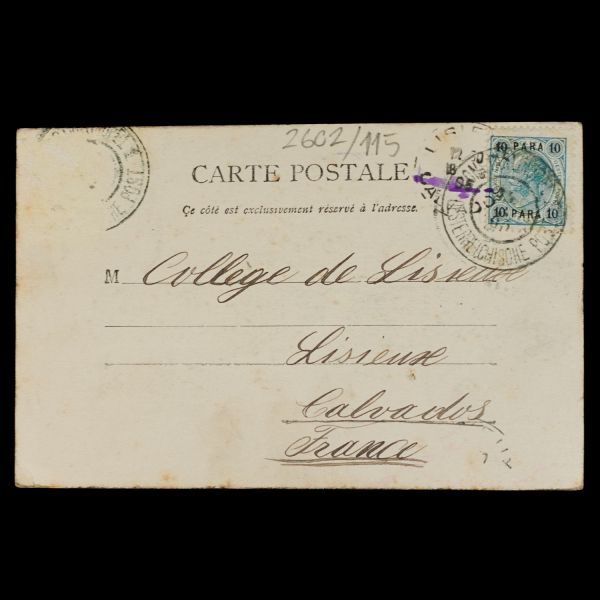 2602/115
CARTE POSTALE
Ce côté est exclusivement réservé à l'adresse.
10 PARA 10
10 PARA 10
ÖSTERREICHISCHE POST
POST
M Collège de Lisieux
Lisieux
Calvados
France